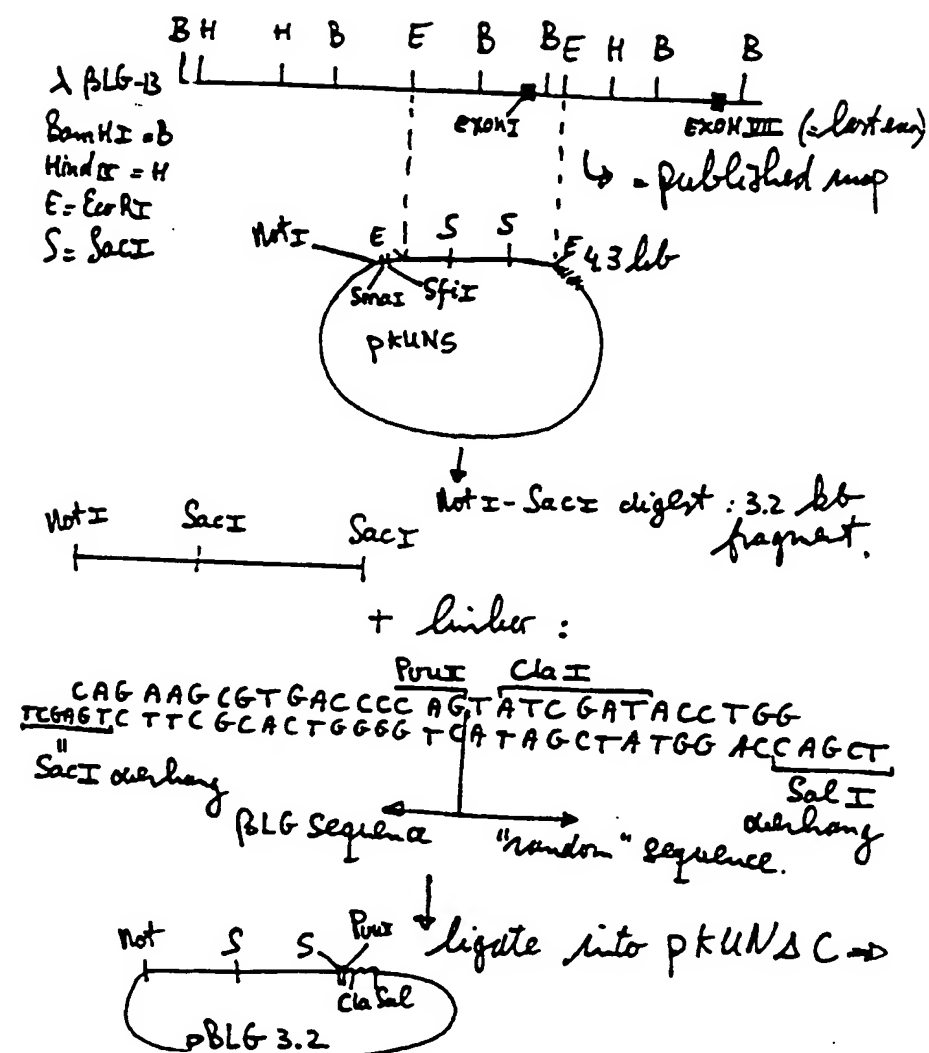 B H H B E B B E H B B
λ βLG-13
BamHI = B
HindIII = H
E = EcoRI
S = SacI
exonI
EXON VII (= last exon)
↳ = published map
NotI E S S E 4.3 kb
SmaI SfiI
pKUN5
↓
NotI-SacI digest : 3.2 kb
fragment.
NotI SacI SacI
+ linker :
PvuI ClaI
CAGAAGCGTGACCCCAGTATCGATACCTGG
TCGAGTCTTCGCACTGGGGTCATAGCTATGGACCAGCT
"
SacI overhang
SalI
overhang
βLG Sequence
"random" sequence.
↓
Not S S PvuI ligate into pKUNΔC ⇒
Cla Sal
pBLG 3.2